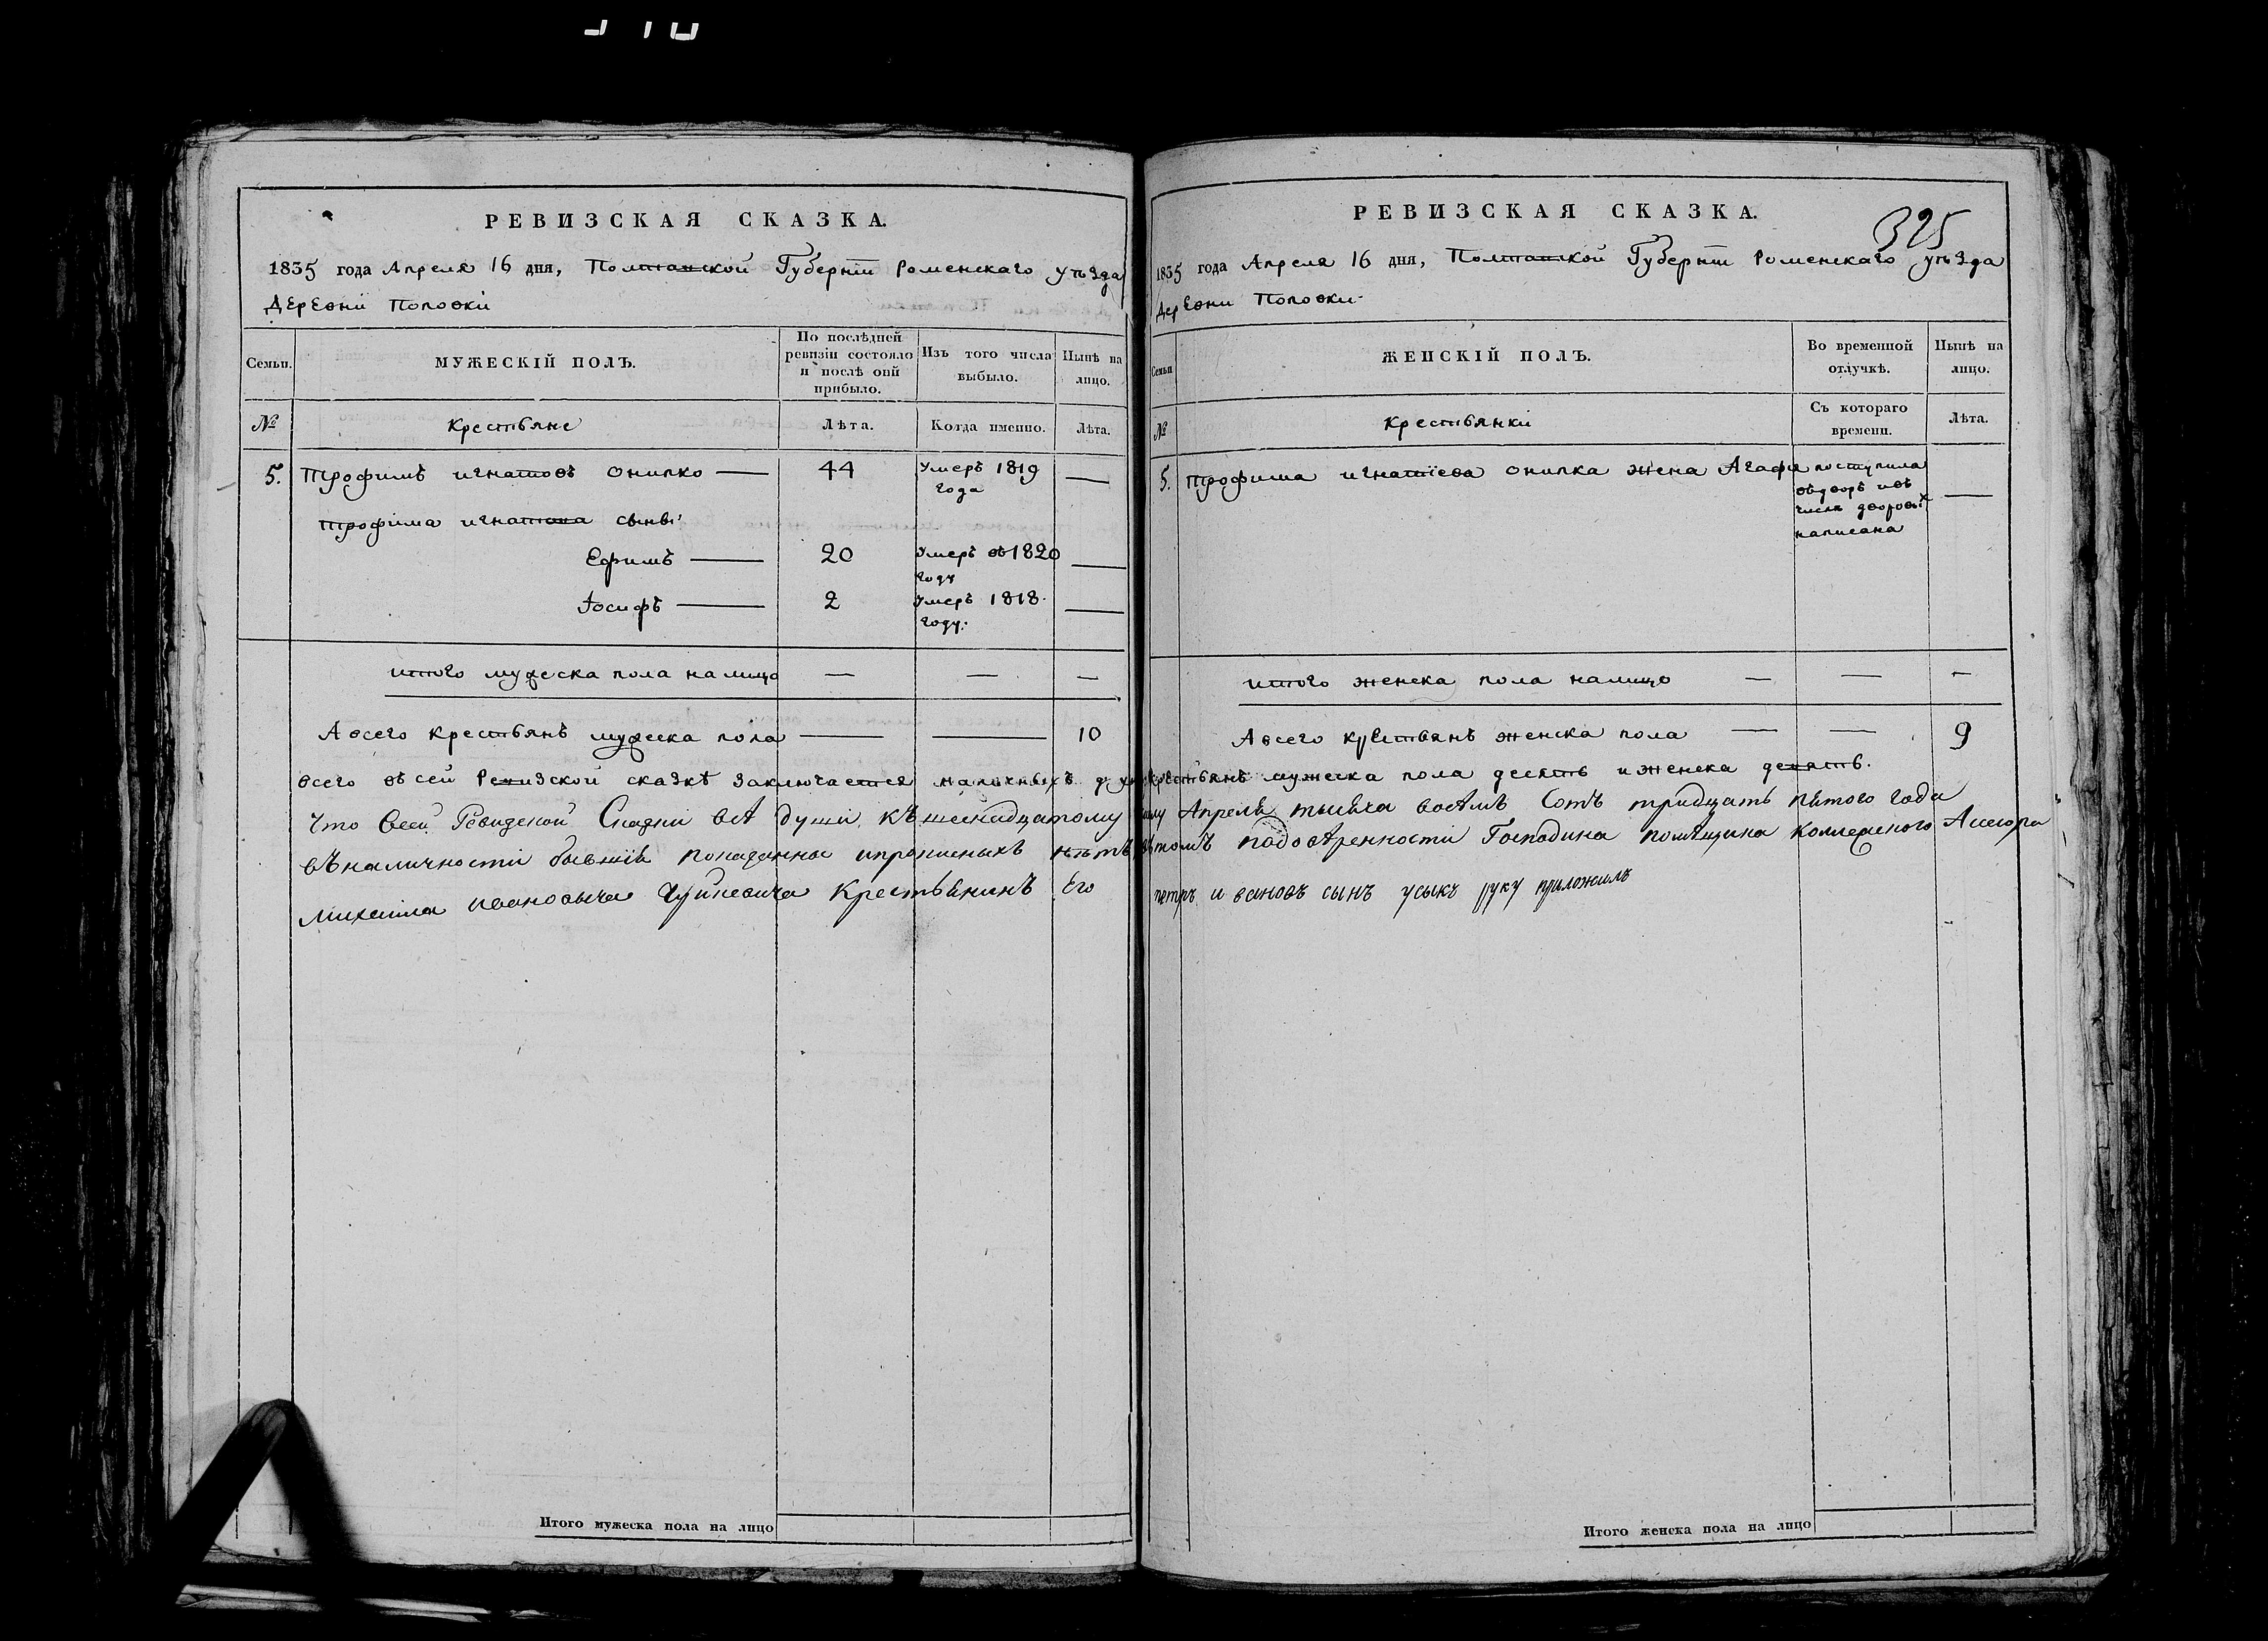 РЕВИЗСКАЯ СКАЗКА.
1835 года Апреля 16 дня, Полтавской Губерніи Роменскаго уѣзда
Деревни Поповки
Семьи.
МУЖЕСКІЙ ПОЛЪ.
По послѣдней ревизіи состояло и послѣ оной прибыло.
Изъ того числа выбыло.
Нынѣ на лицо.
№
Крестьяне
Лѣта.
Когда именно.
Лѣта.
5. Трофимъ игнатовъ онипко — 44 Умеръ 1819 года —
Трофима игнатова сыны:
Ефимъ — 20 Умеръ въ 1820 году —
Іосифъ — 2 Умеръ 1818. году. —
итого мужеска пола налицо — — —
А всего крестьянъ мужеска пола — — 10
Итого мужеска пола на лицо
РЕВИЗСКАЯ СКАЗКА.
325
1835 года Апреля 16 дня, Полтавской Губерніи Роменскаго уѣзда
Деревни Поповки.
Семьи
ЖЕНСКІЙ ПОЛЪ.
Во временной отлучкѣ.
Нынѣ на лицо.
№
Крестьянки
Съ котораго времени.
Лѣта.
5. Трофима игнатіева онипка жена Агафія поступила вѣдворъ ивъ числѣ дворовых написана —
итого женска пола налицо — — —
А всего крестьянъ женска пола — — 9
всего въ сей Ревизской сказкѣ заключается наличныхъ душъ крестьянъ мужеска пола десять иженска девять.
что всей Ревизской Сказки всѣ души къ шеснадцатому Апреля тысяча восѣмъ Сотъ тридцать пятого года
въналичности бывшія показанны ипрописныхъ нѣтъ вѣтомъ подовѣренности Господина помѣщика Коллежского Ассесора
Михаила ивановыча Чуйкевича Крестьянинъ Его петръ ивановъ сынъ усыкъ руку приложилъ
Итого женска пола на лицо